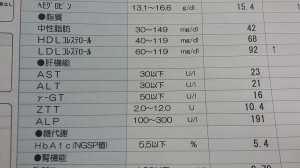 ヘモグロビン 13.1~16.6 g/dl 15.4
●脂質
中性脂肪 30~149 mg/dl 42
HDLコレステロール 40~119 mg/dl 68
LDLコレステロール 60~119 mg/dl 92 ↑
●肝機能
AST 30以下 U/l 23
ALT 30以下 U/l 21
γ-GT 50以下 U/l 16
ZTT 2.0~12.0 U 10.4
ALP 100~300 U/l 191
●糖代謝
HbA1c(NGSP値) 5.5以下 % 5.4
●腎機能